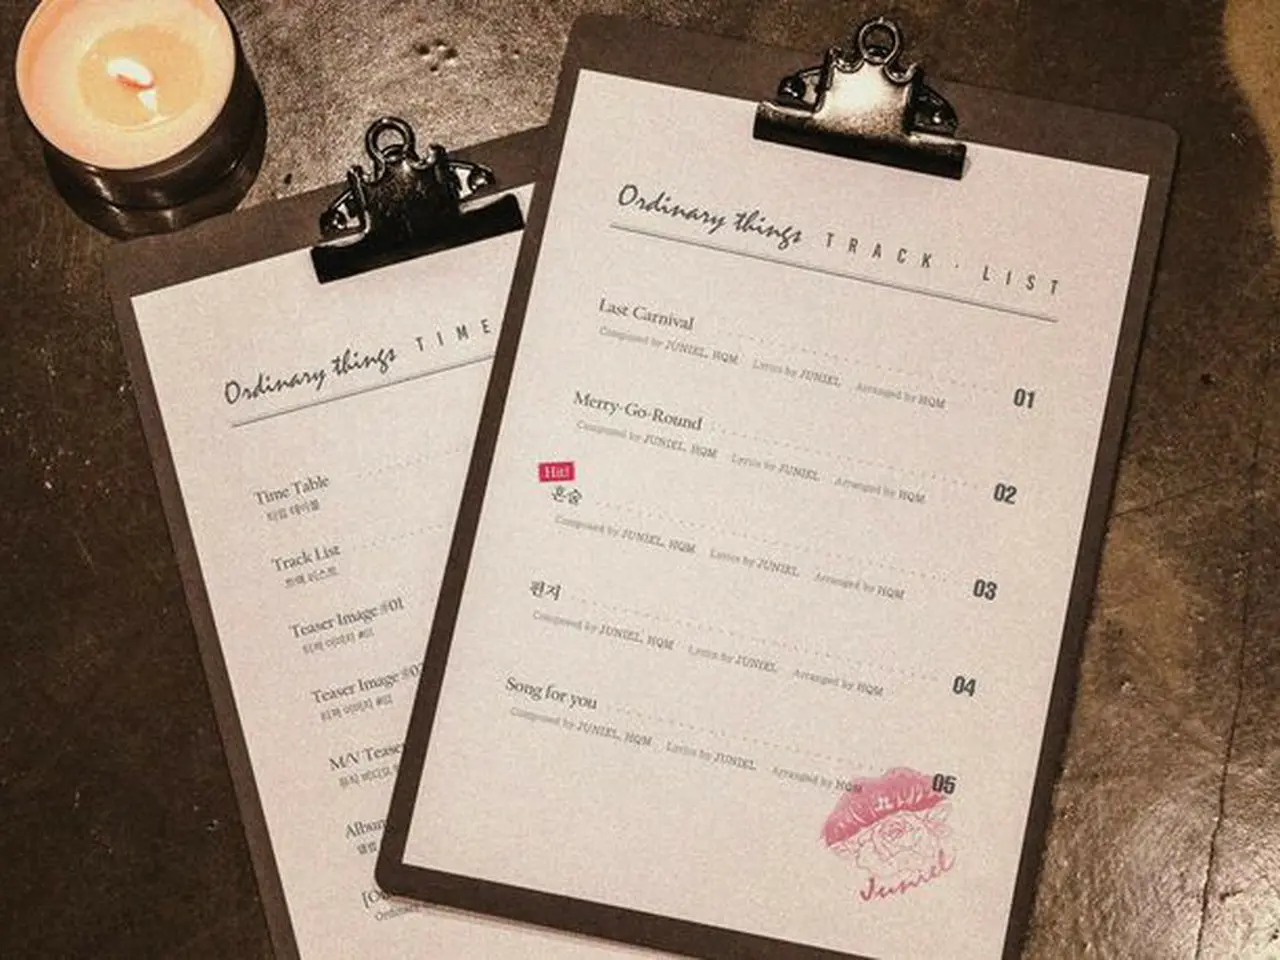 Ordinary things TRACK · LIST
Last Carnival
Composed by JUNIEL, HQM Lyrics by JUNIEL Arranged by HQM
01
Merry-Go-Round
Composed by JUNIEL, HQM Lyrics by JUNIEL Arranged by HQM
02
Hit!
혼술
Composed by JUNIEL, HQM Lyrics by JUNIEL Arranged by HQM
03
편지
Composed by JUNIEL, HQM Lyrics by JUNIEL Arranged by HQM
04
Song for you
Composed by JUNIEL, HQM Lyrics by JUNIEL Arranged by HQM
05
Juniel
Ordinary things TIME
Time Table
타임 테이블
Track List
트랙 리스트
Teaser Image #01
티저 이미지 #01
Teaser Image #02
티저 이미지 #02
M/V Teaser
뮤직 비디오
Album
앨범